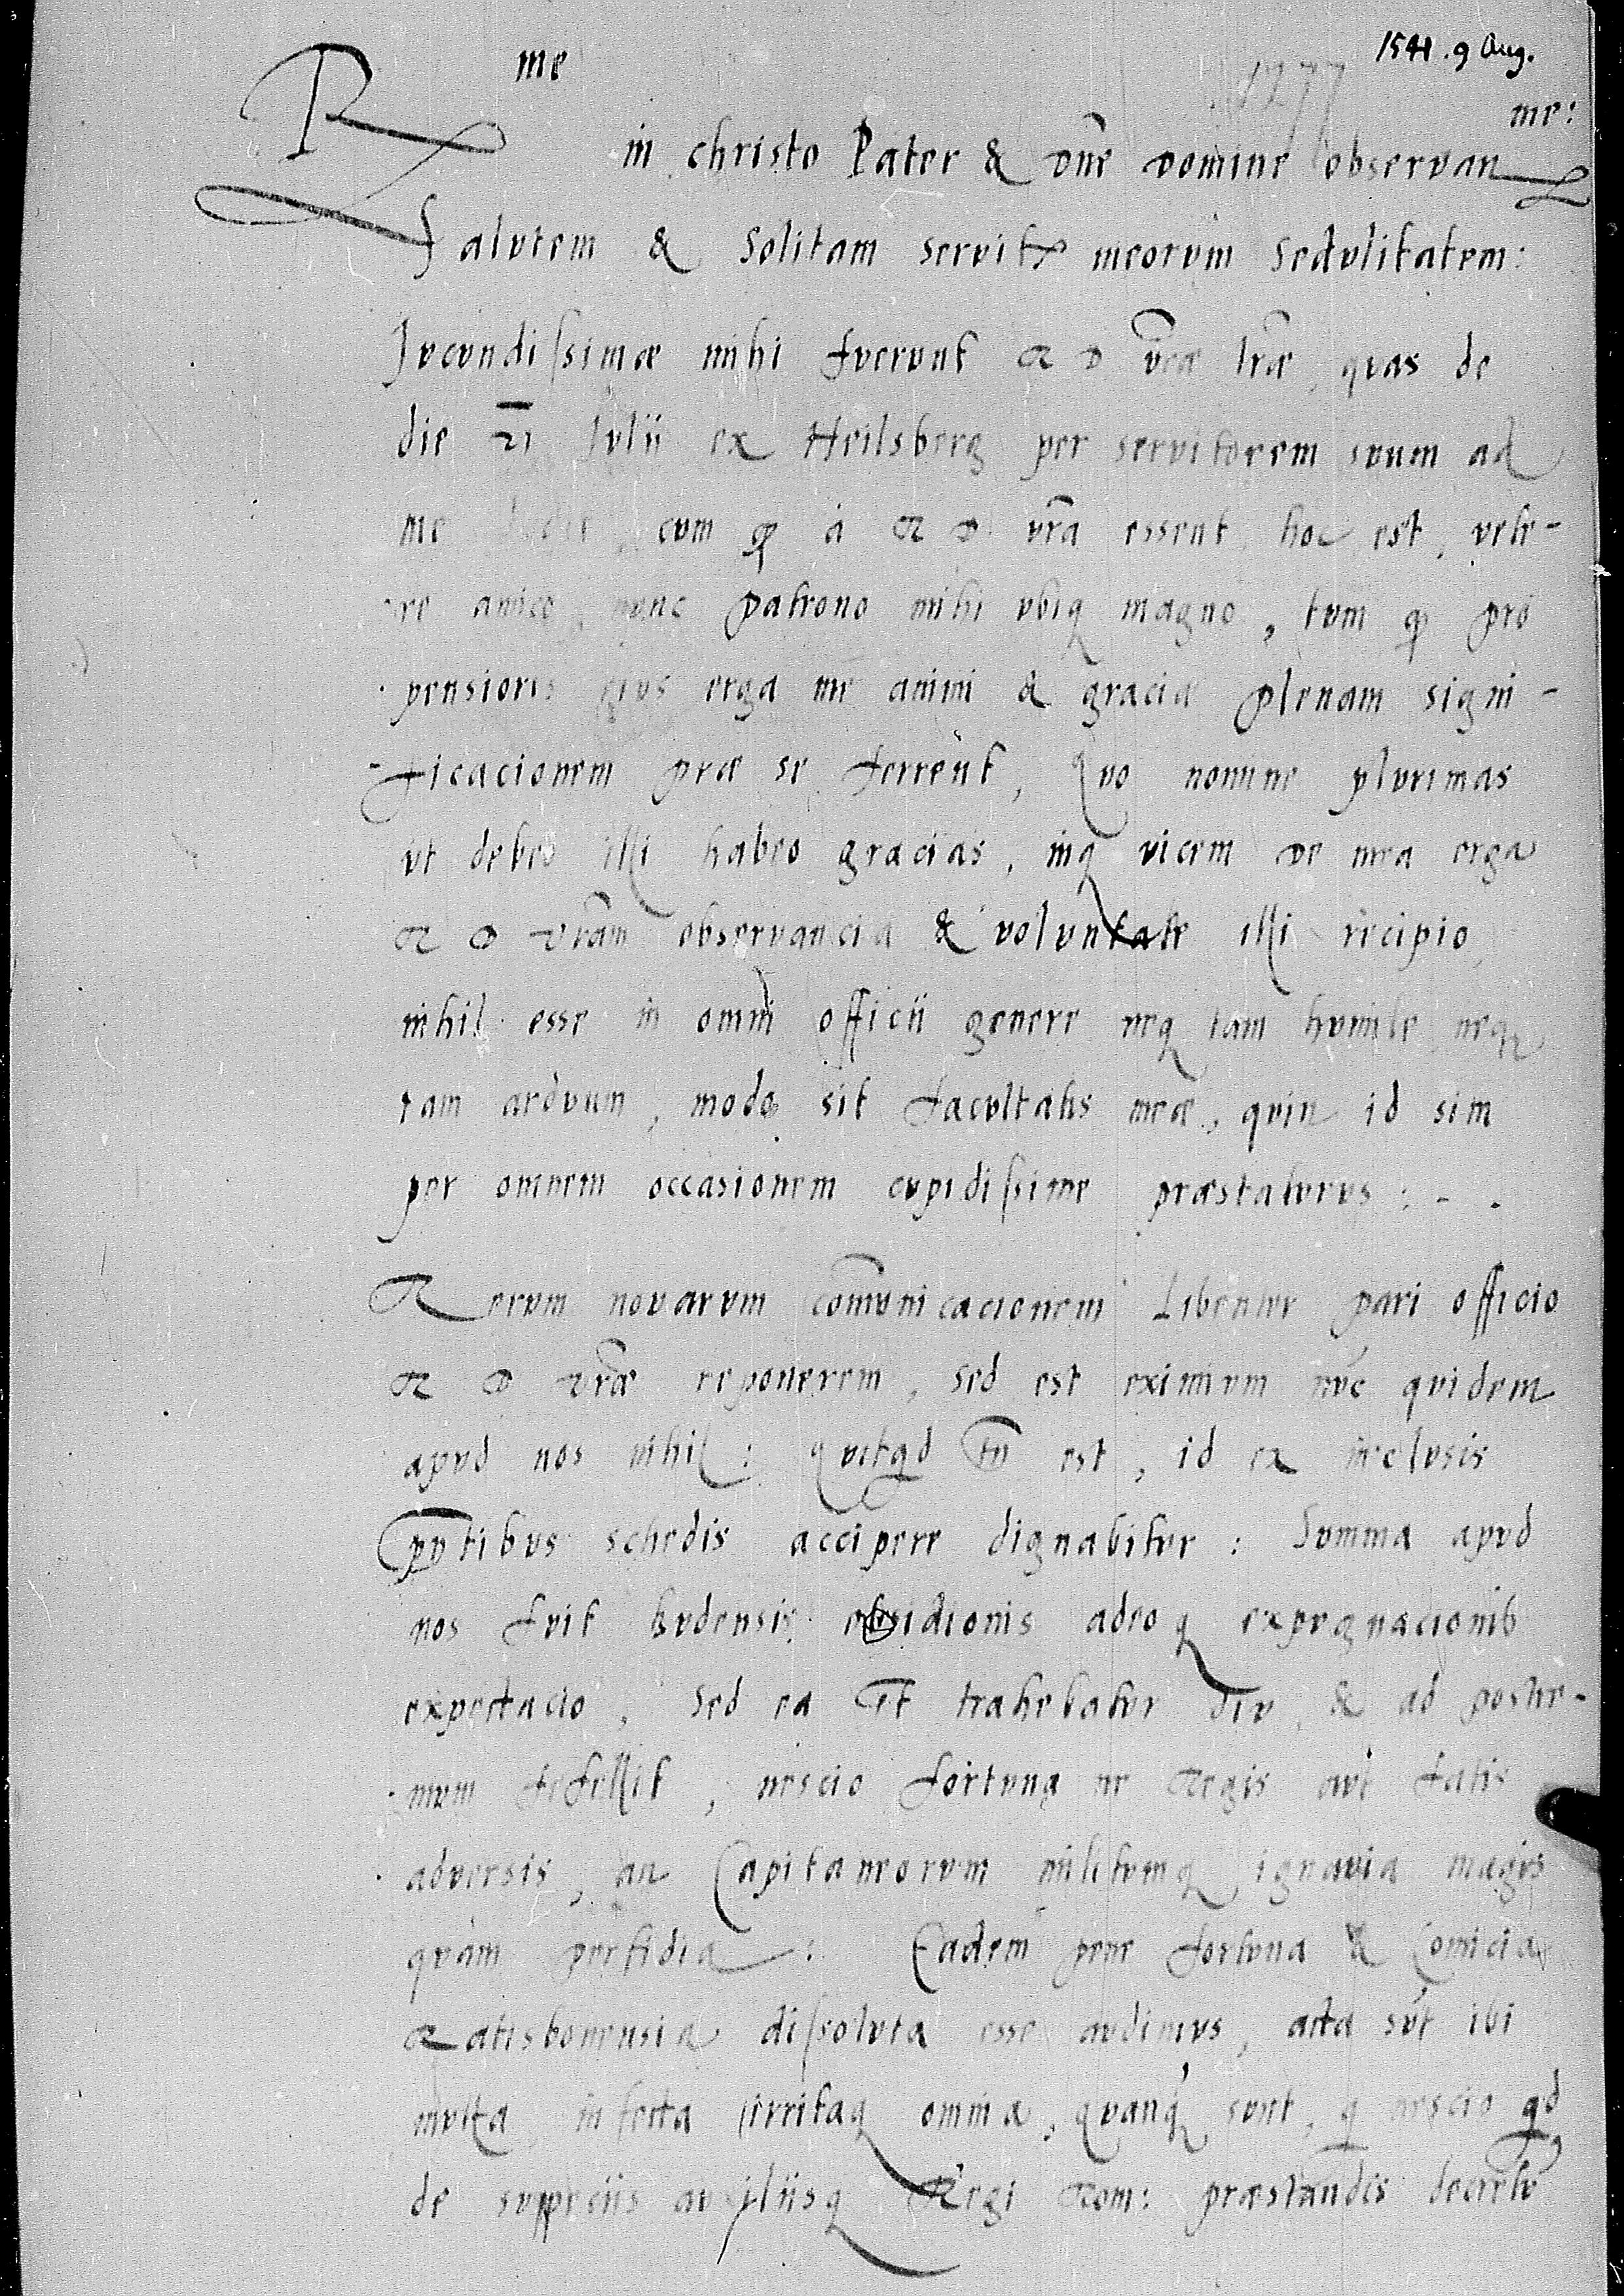 1541. 9 Aug.
1277
R me in christo Pater & dne domine observan me:
Salutem & Solitam servit meorum sedulitatem:
Jucundissimae mihi fuerunt R D vrae lrae, quas de
die 21 Julii ex Heilsberg per servitorem suum ad
me cum q a R D vra essent, hoc est, vete-
re amico, nunc patrono mihi ubiq magno, tum q pro
pensioris eius erga me animi & graciae plenam signi-
ficacionem prae se ferrent, Quo nomine plurimas
ut debeo illi habeo gracias, inq vicem de mea erga
R D vram observancia & voluntate illi recipio,
nihil esse in omni officii genere neq tam humile neq
tam arduum, modo sit facultatis meae, quin id sim
per omnem occasionem cupidissime praestaturus: - .
Rerum novarum comunicacionem Libenter pari officio
R D vrae reponerem, sed est eximium nuc quidem
apud nos nihil: quitqd tn est, id ex inclusis
pntibus schedis accipere dignabitur: Summa apud
nos fuit budensis obsidionis adeoq expugnacionis
expectacio, Sed ea et trahebatur diu, & ad postre-
mum fefellit, nescio fortuna ne Regis aut fatis
adversis, an Capitaneorum militumq ignavia magis
quàm perfidia: Eadem pene fortuna & Comicia
Ratisbonensia dissoluta esse audimus, acta sut ibi
multa, infecta irritaq omnia, quanq sunt, q nescio qd
de suppeciis auxiliisq Regi Rom: praestandis decretu